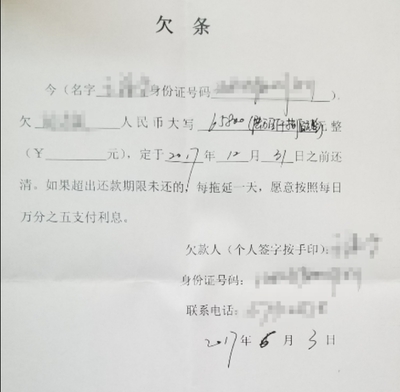 欠 条
今（名字 身份证号码 ）.
欠 人民币大写 65800 整
（¥ 元），定于 2017 年 10 月 31 日之前还
清。如果超出还款期限未还的，每拖延一天，愿意按照每日
万分之五支付利息。
欠款人（个人签字按手印）：
身份证号码：
联系电话：
2017 年 6 月 3 日